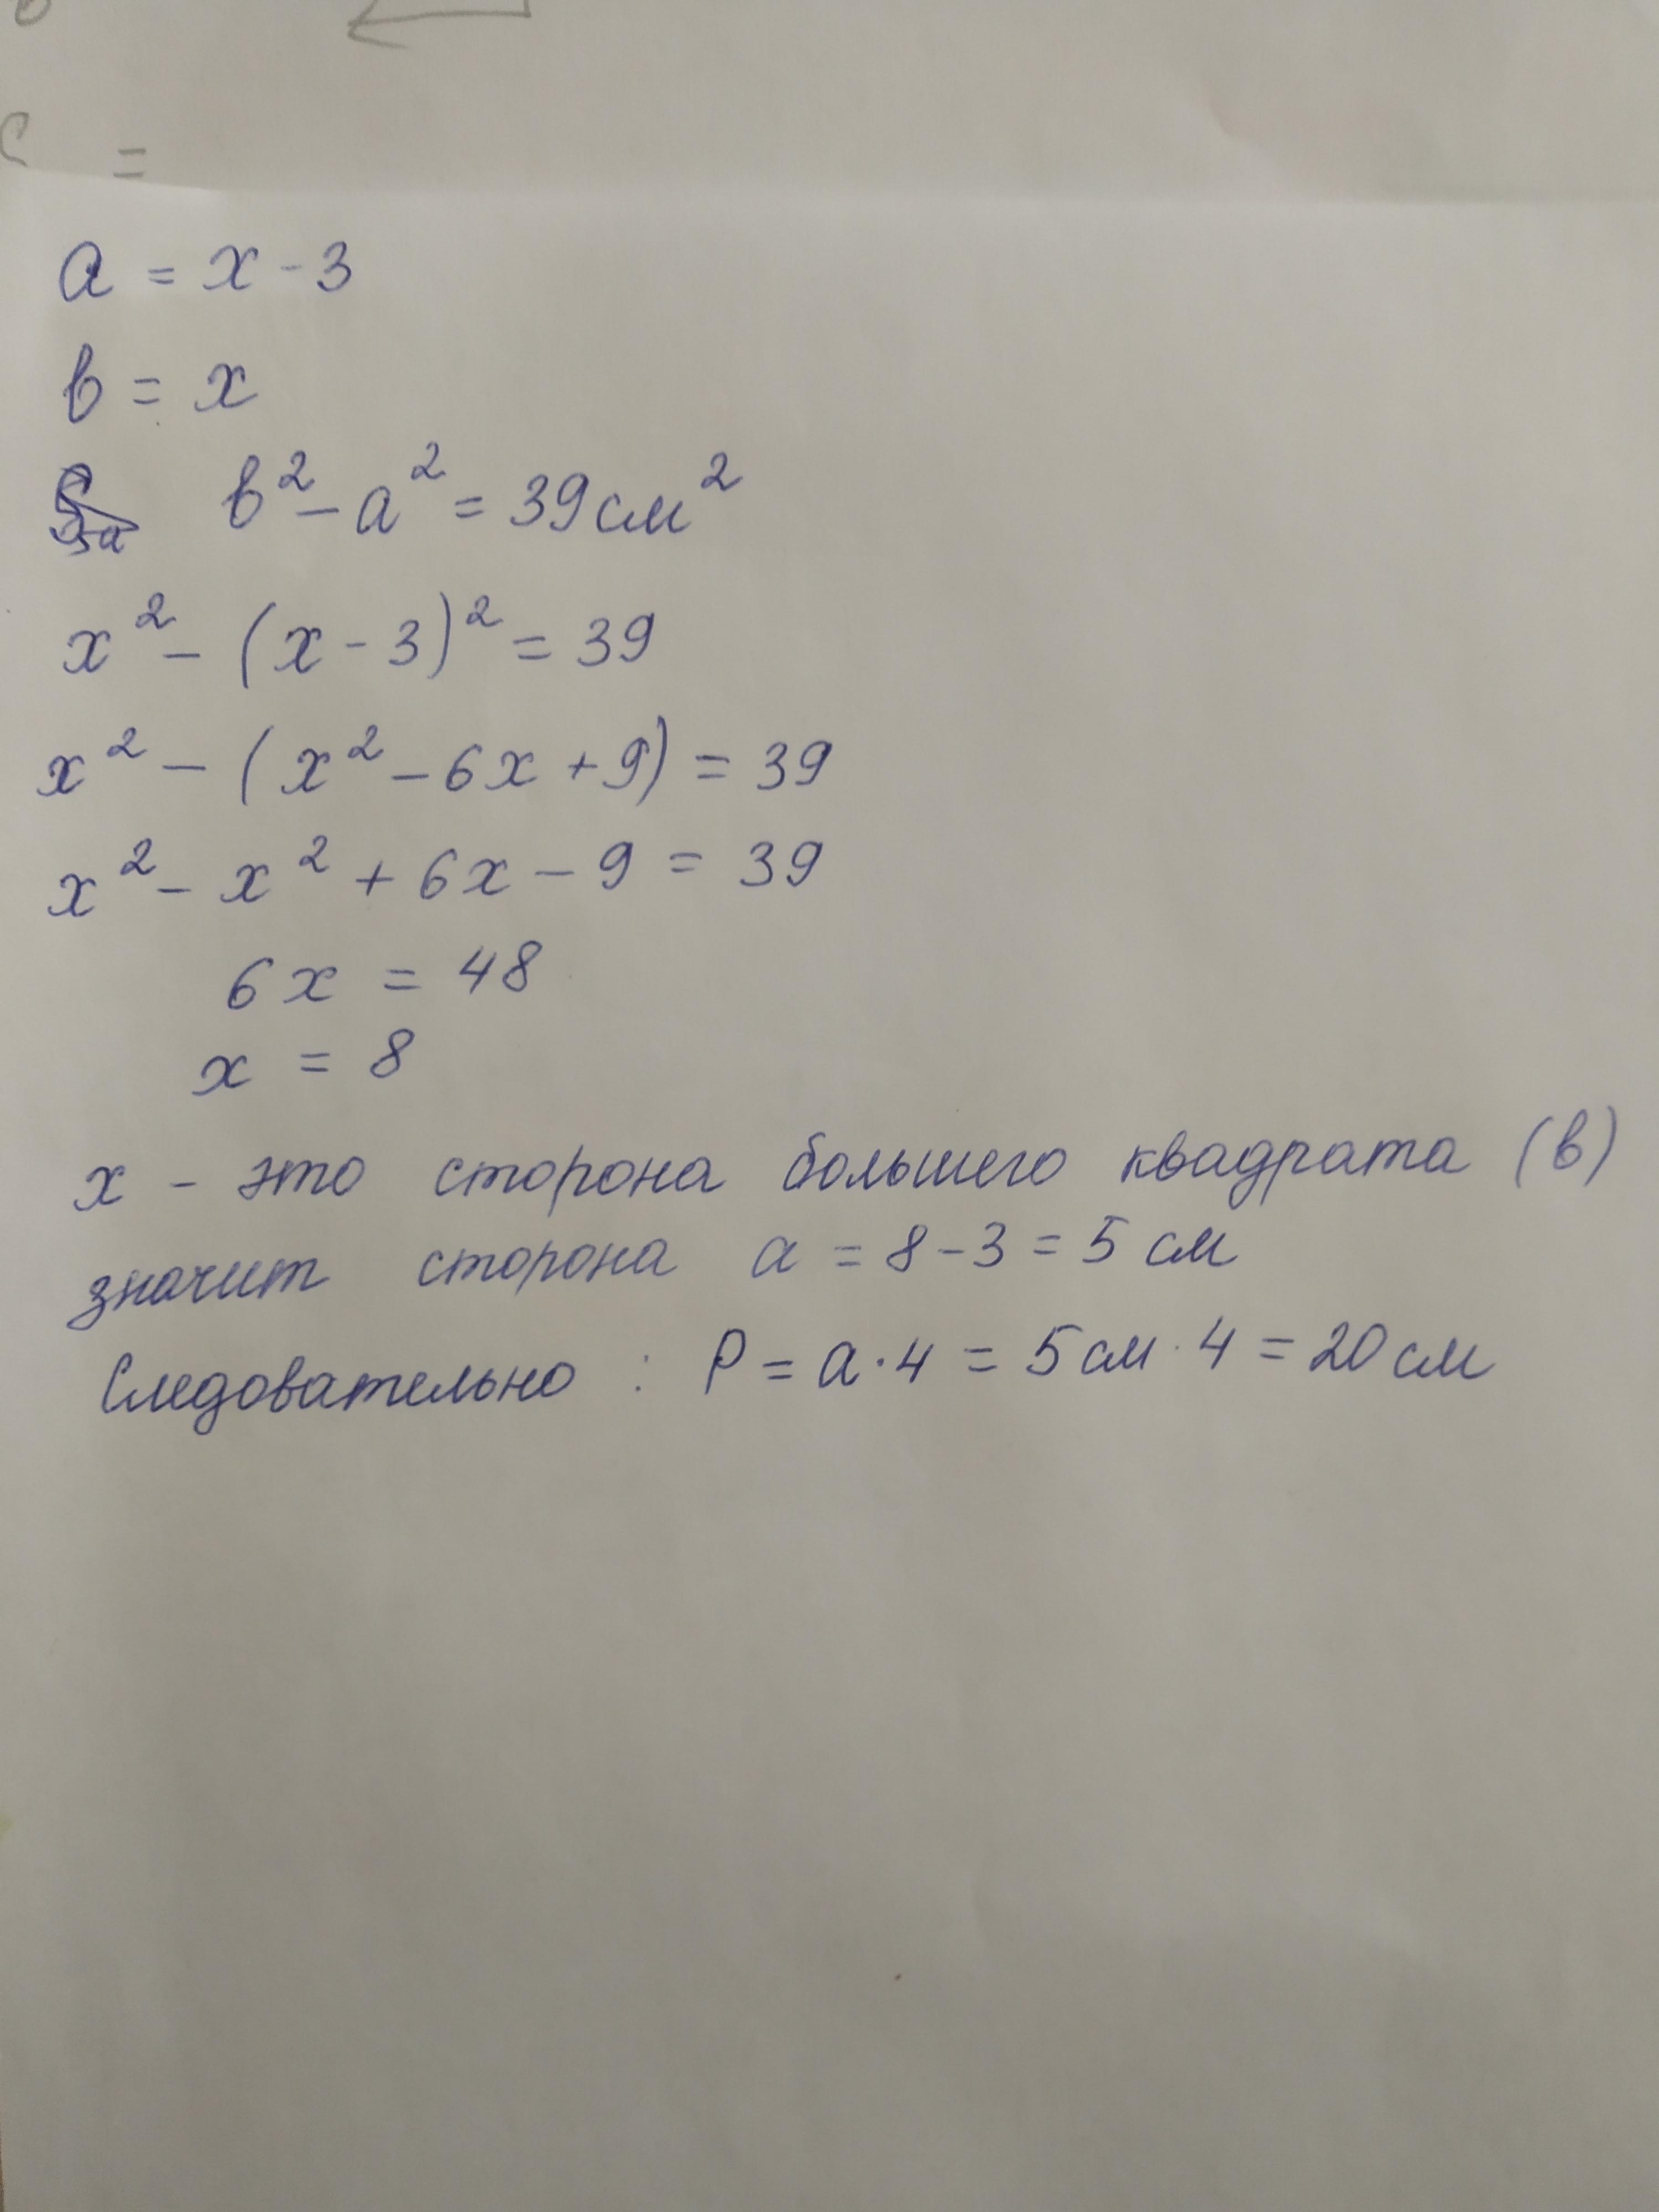 =
a = x - 3
b = x
b² - a² = 39 см²
x² - (x - 3)² = 39
x² - (x² - 6x + 9) = 39
x² - x² + 6x - 9 = 39
6x = 48
x = 8
x - это сторона большего квадрата (b)
значит сторона a = 8 - 3 = 5 см
Следовательно : P = a · 4 = 5 см · 4 = 20 см